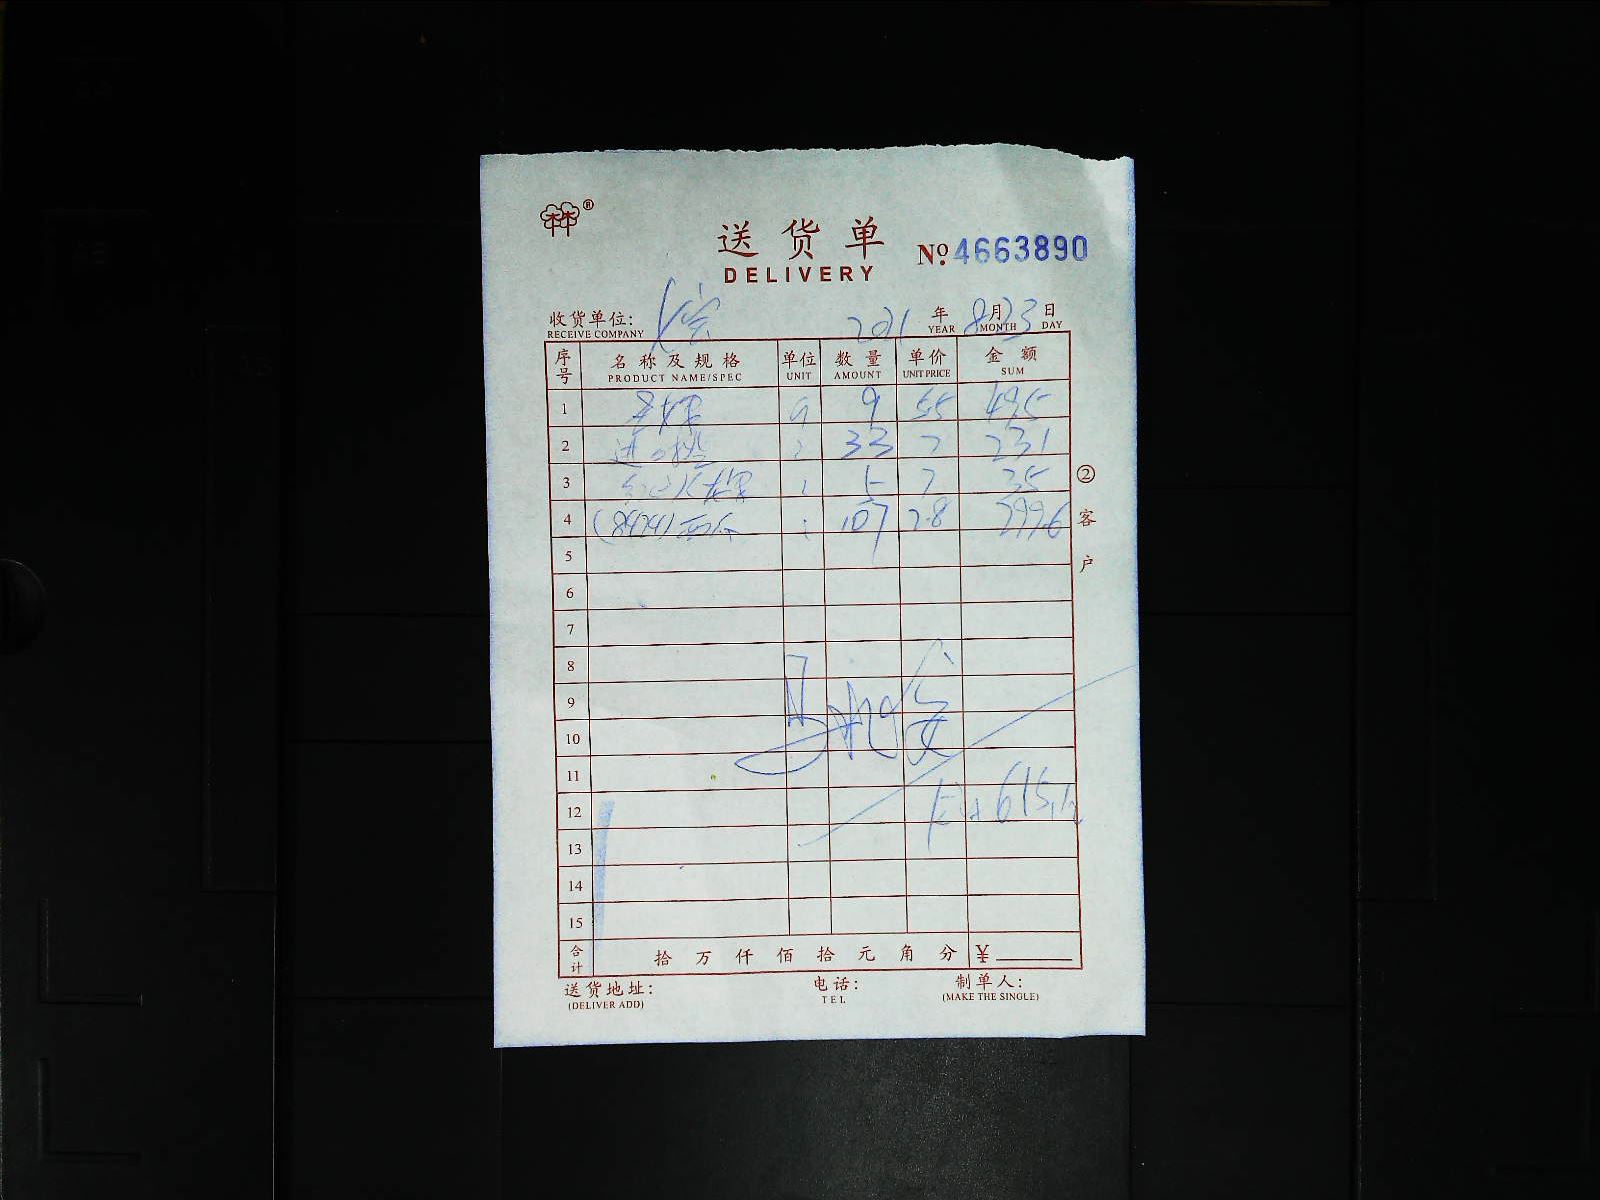 ®
送货单
DELIVERY
№ 4663890
收货单位:
RECEIVE COMPANY
2021 年 8 月 23 日
YEAR MONTH DAY
序号 名称及规格 单位 数量 单价 金额
PRODUCT NAME/SPEC UNIT AMOUNT UNIT PRICE SUM
1 9 5.5 49.5
2 进口橙 33 7 231
3 5 7 35
4 (8424) 西瓜 107 2.8 299.6
5
6
7
8
9
10
11
12 615.1
13
14
15
合计 拾 万 仟 佰 拾 元 角 分 ¥
送货地址: 电话: 制单人:
(DELIVER ADD) TEL (MAKE THE SINGLE)
② 客户